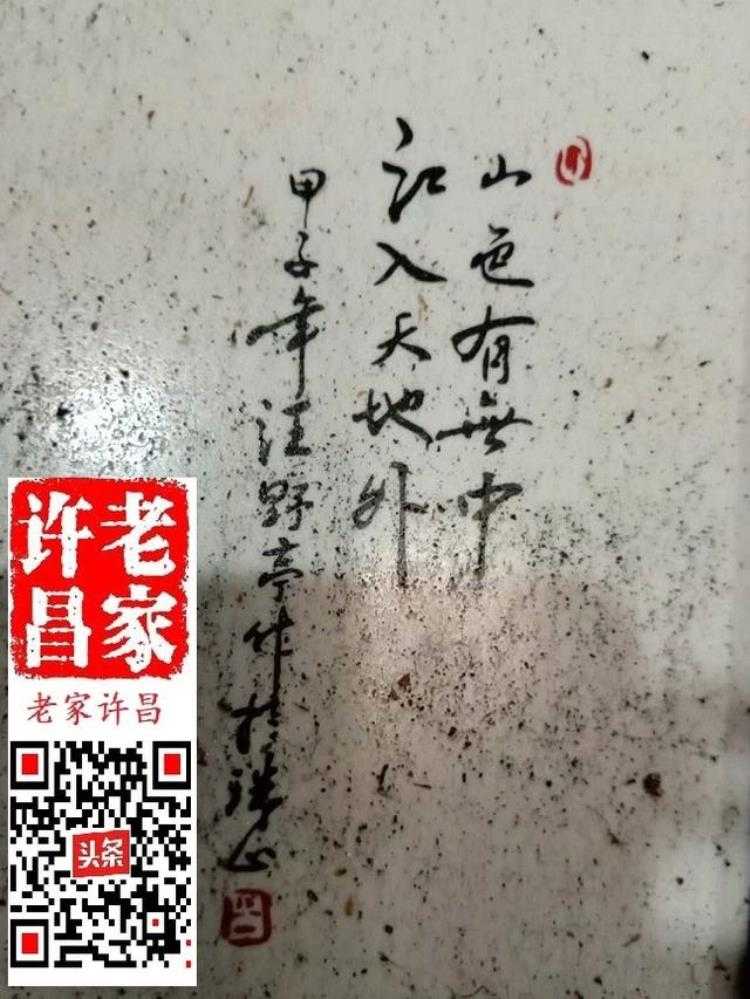 山色有無中
江入天地外
甲子年汪野亭作於珠山
老家
许昌
老家许昌
头条